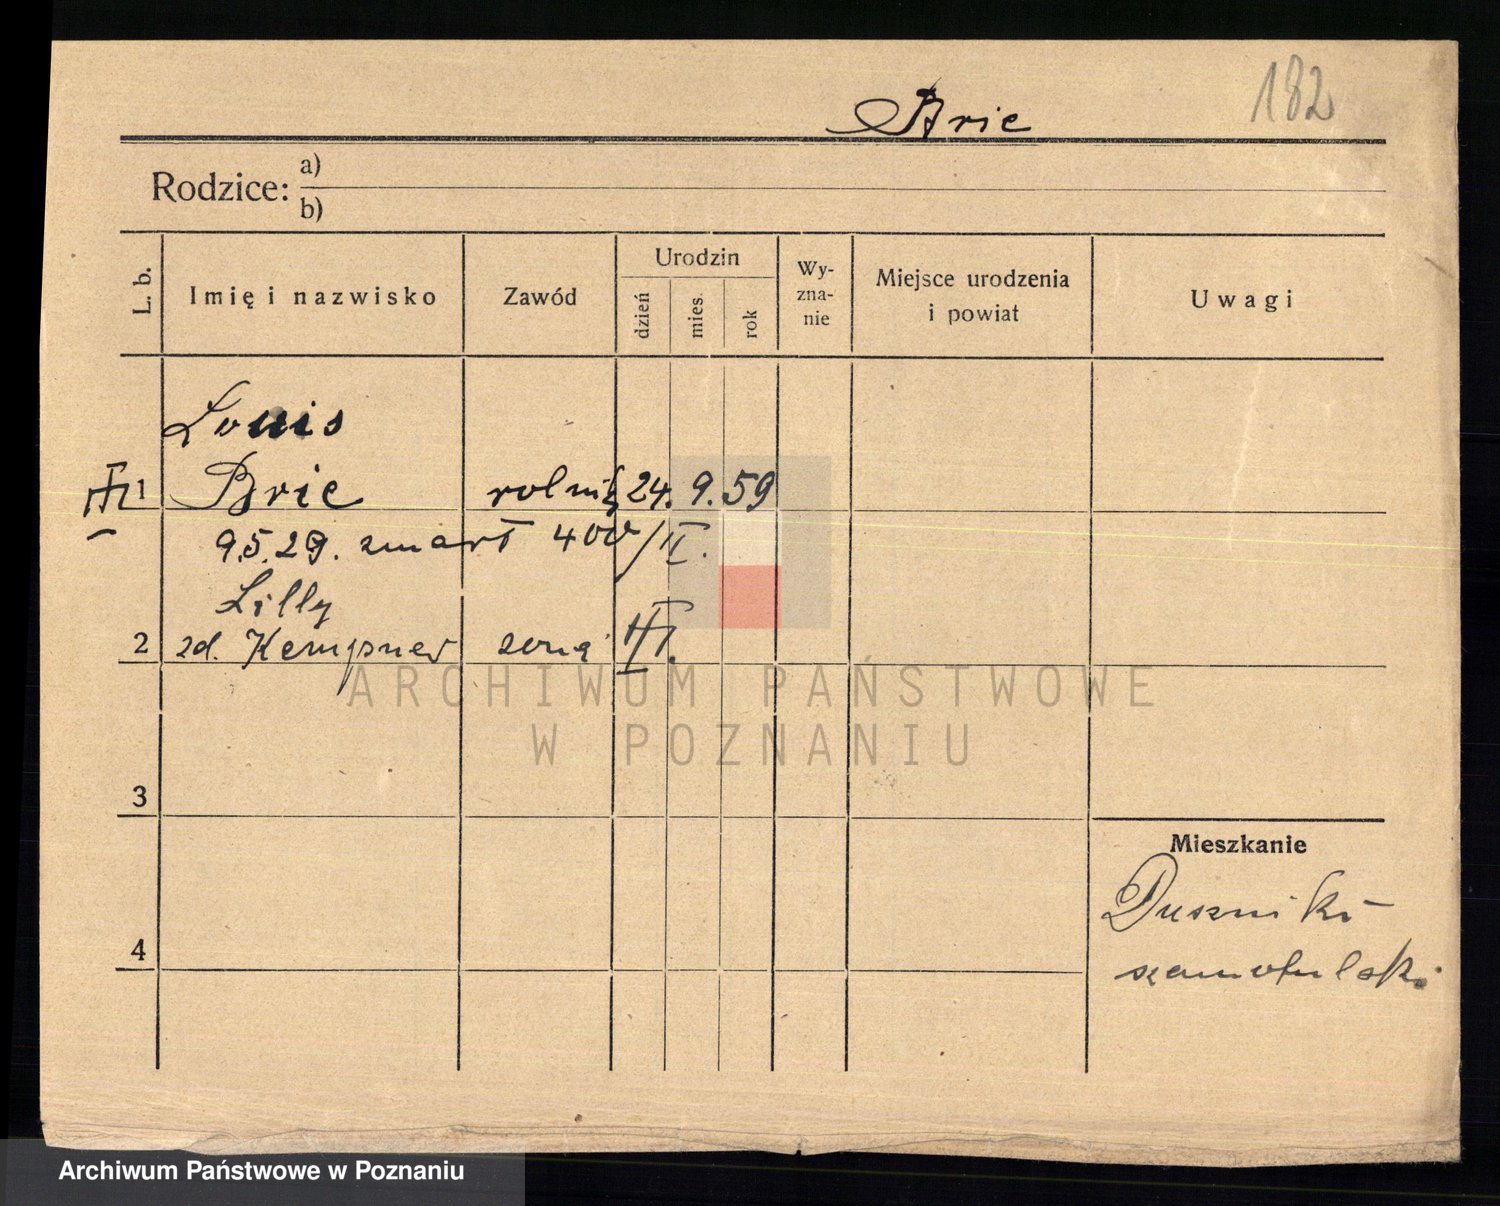 182
Brie
Rodzice: a)
b)
L. b.
Imię i nazwisko
Zawód
Urodzin
dzień
mies.
rok
Wy-
zna-
nie
Miejsce urodzenia
i powiat
Uwagi
Louis
1 Brie rolnik 24. 9. 59
9.5.29. zmarł 400/II.
Lilly
2 zd. Kempner żona
3
4
Mieszkanie
Duszniki
szamotulski
ARCHIWUM PAŃSTWOWE
W POZNANIU
Archiwum Państwowe w Poznaniu